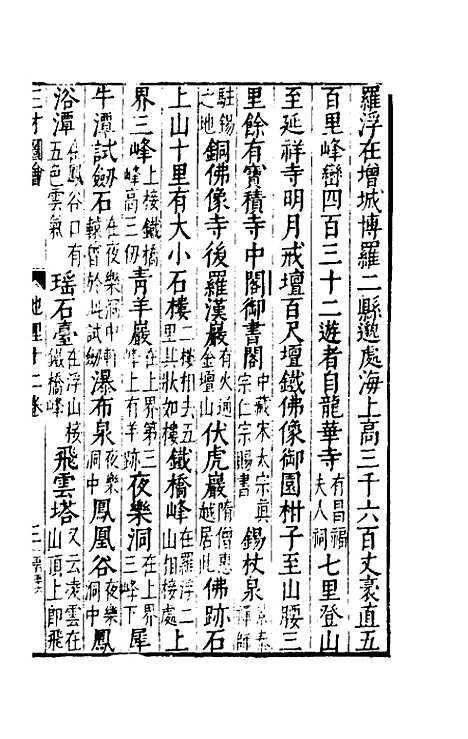 羅浮在增城博羅二縣邇處海上高三千六百丈袤直五
百里峰巒四百三十二遊者自龍華寺有昌福夫人祠七里登山
至延祥寺明月戒壇百尺壇鐵佛像御園柑子至山腰三
里餘有寶積寺中閣御書閣中藏宋太宗真宗仁宗賜書錫杖泉景泰禪師
駐錫之地銅佛像寺後羅漢巖有火通金壇山伏虎巖隋僧惠越居此佛跡石
上山十里有大小石樓二樓相去五里其狀如樓鐵橋峰在羅浮二山相接處上
界三峰上接鐵橋峰高三仞青羊巖在上界第三有羊跡夜樂洞在上界三峰下犀
牛潭試劒石在夜樂洞中軒轅嘗於此試劒瀑布泉夜樂洞中鳳凰谷夜樂洞中鳳
浴潭在鳳谷口有五色雲氣瑤石臺在浮山接鐵橋峰飛雲塔又云淩雲在山頂上即飛
三才圖會 地理十二卷